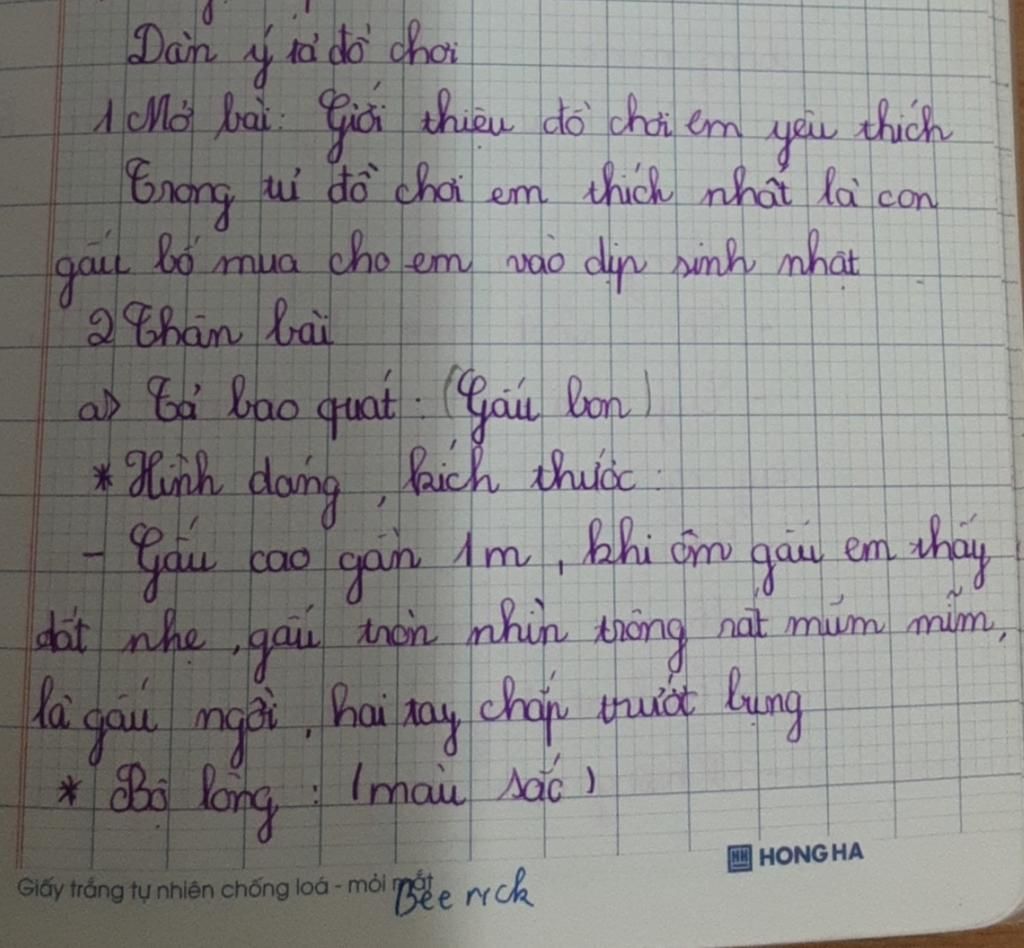 Dàn ý tả đồ chơi
1 Mở bài: Giới thiệu đồ chơi em yêu thích
Trong tủ đồ chơi em thích nhất là con
gấu bố mua cho em vào dịp sinh nhật
2 Thân bài
a) Tả bao quát: (Gấu bon)
* Hình dáng, kích thước:
- Gấu cao gần 1m, khi ôm gấu em thấy
dất nhẹ, gấu tròn nhìn trông rất mủm mĩm,
là gấu ngồi, hai tay chắp trướt bụng
* Bộ lông: (màu sắc)
HONG HA
Giấy trắng tự nhiên chống loá - mỏi mắt
Bee rick